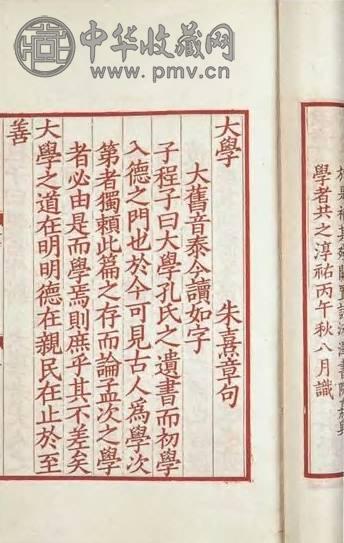 中华收藏网
www.pmv.cn
學者共之淳祐丙午秋八月識
大學 朱熹章句
大舊音泰今讀如字
子程子曰大學孔氏之遺書而初學
入德之門也於今可見古人為學次
第者獨賴此篇之存而論孟次之學
者必由是而學焉則庶乎其不差矣
大學之道在明明德在親民在止於至
善